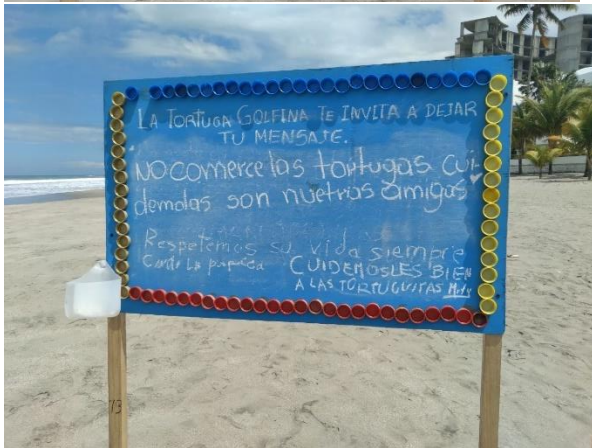 LA TORTUGA GOLFINA TE INVITA A DEJAR
TU MENSAJE.
NO COMERCE las tortugas cui-
demolas son nuetras amigas
Respetemos su vida siempre
CUIDEMOSLES BIEN
A LAS TORTUGUITAS
13